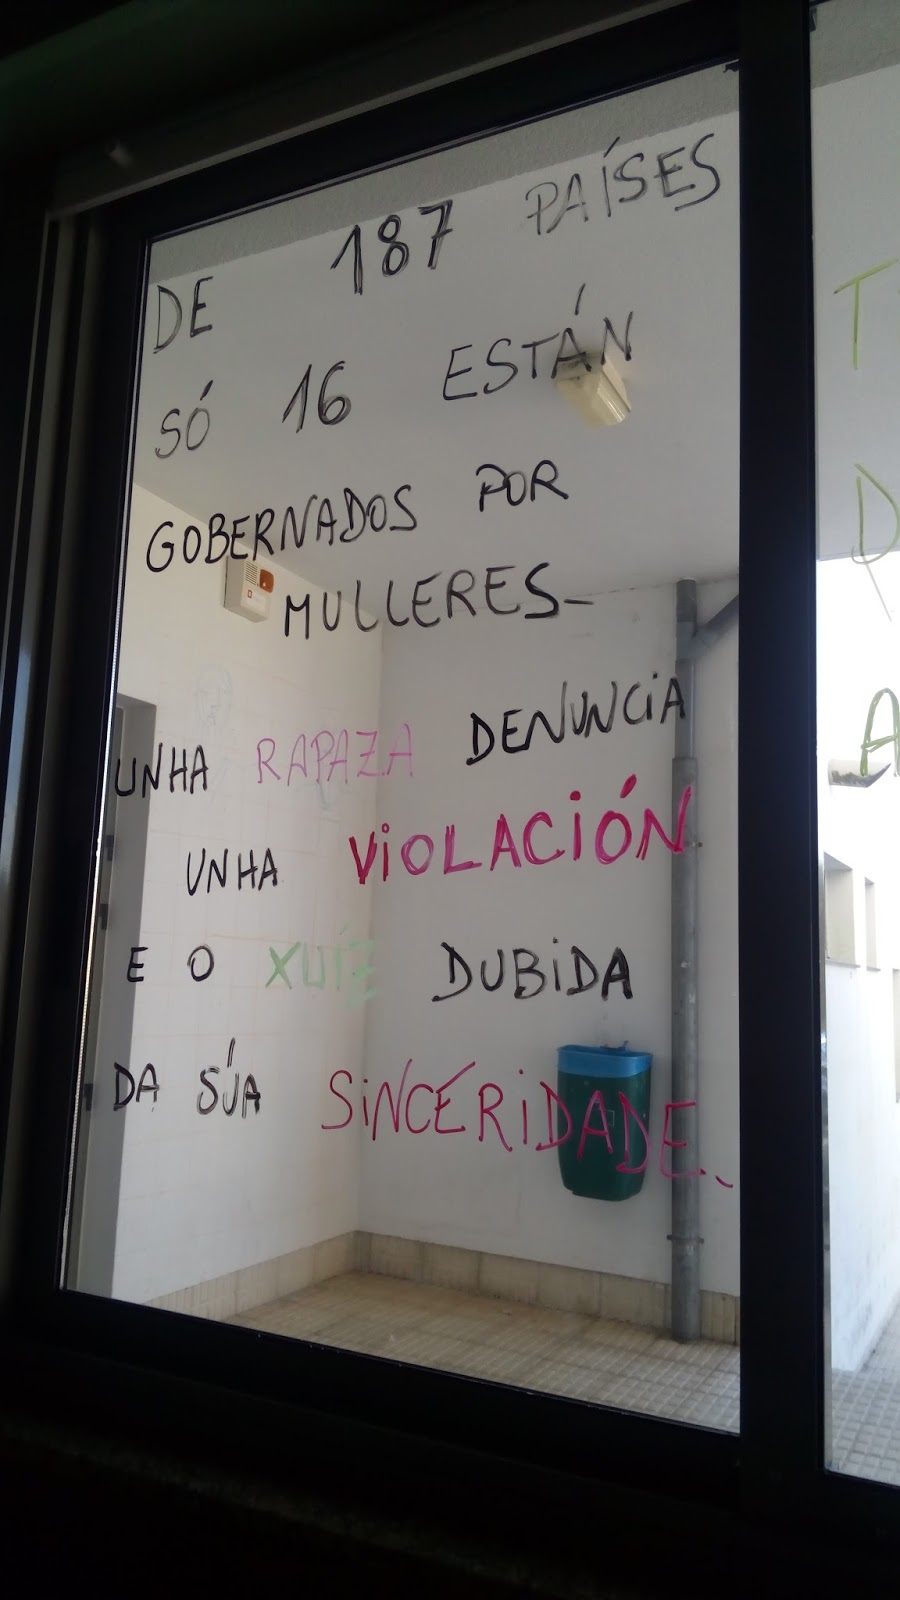 DE 187 PAÍSES
SÓ 16 ESTÁN
GOBERNADOS POR
MULLERES_
UNHA RAPAZA DENUNCIA
UNHA VIOLACIÓN
E O XUÍZ DUBIDA
DA SÚA SINCERIDADE_